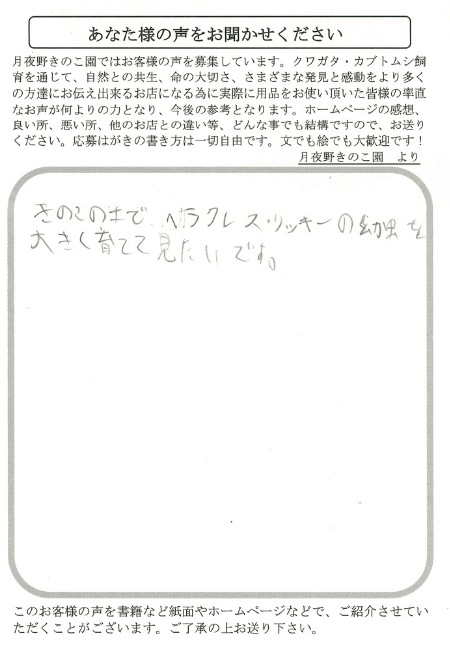 あなた様の声をお聞かせください
月夜野きのこ園ではお客様の声を募集しています。クワガタ・カブトムシ飼
育を通じて、自然との共生、命の大切さ、さまざまな発見と感動をより多く
の方達にお伝え出来るお店になる為に実際に用品をお使い頂いた皆様の率直
なお声が何よりの力となり、今後の参考となります。ホームページの感想、
良い所、悪い所、他のお店との違い等、どんな事でも結構ですので、お送り
ください。応募はがきの書き方は一切自由です。文でも絵でも大歓迎です！
月夜野きのこ園　より
きのこの土で、ヘラクレス・リッキーの幼虫を
大きく育てて見たいです。
このお客様の声を書籍など紙面やホームページなどで、ご紹介させてい
ただくことがございます。ご了承の上お送り下さい。